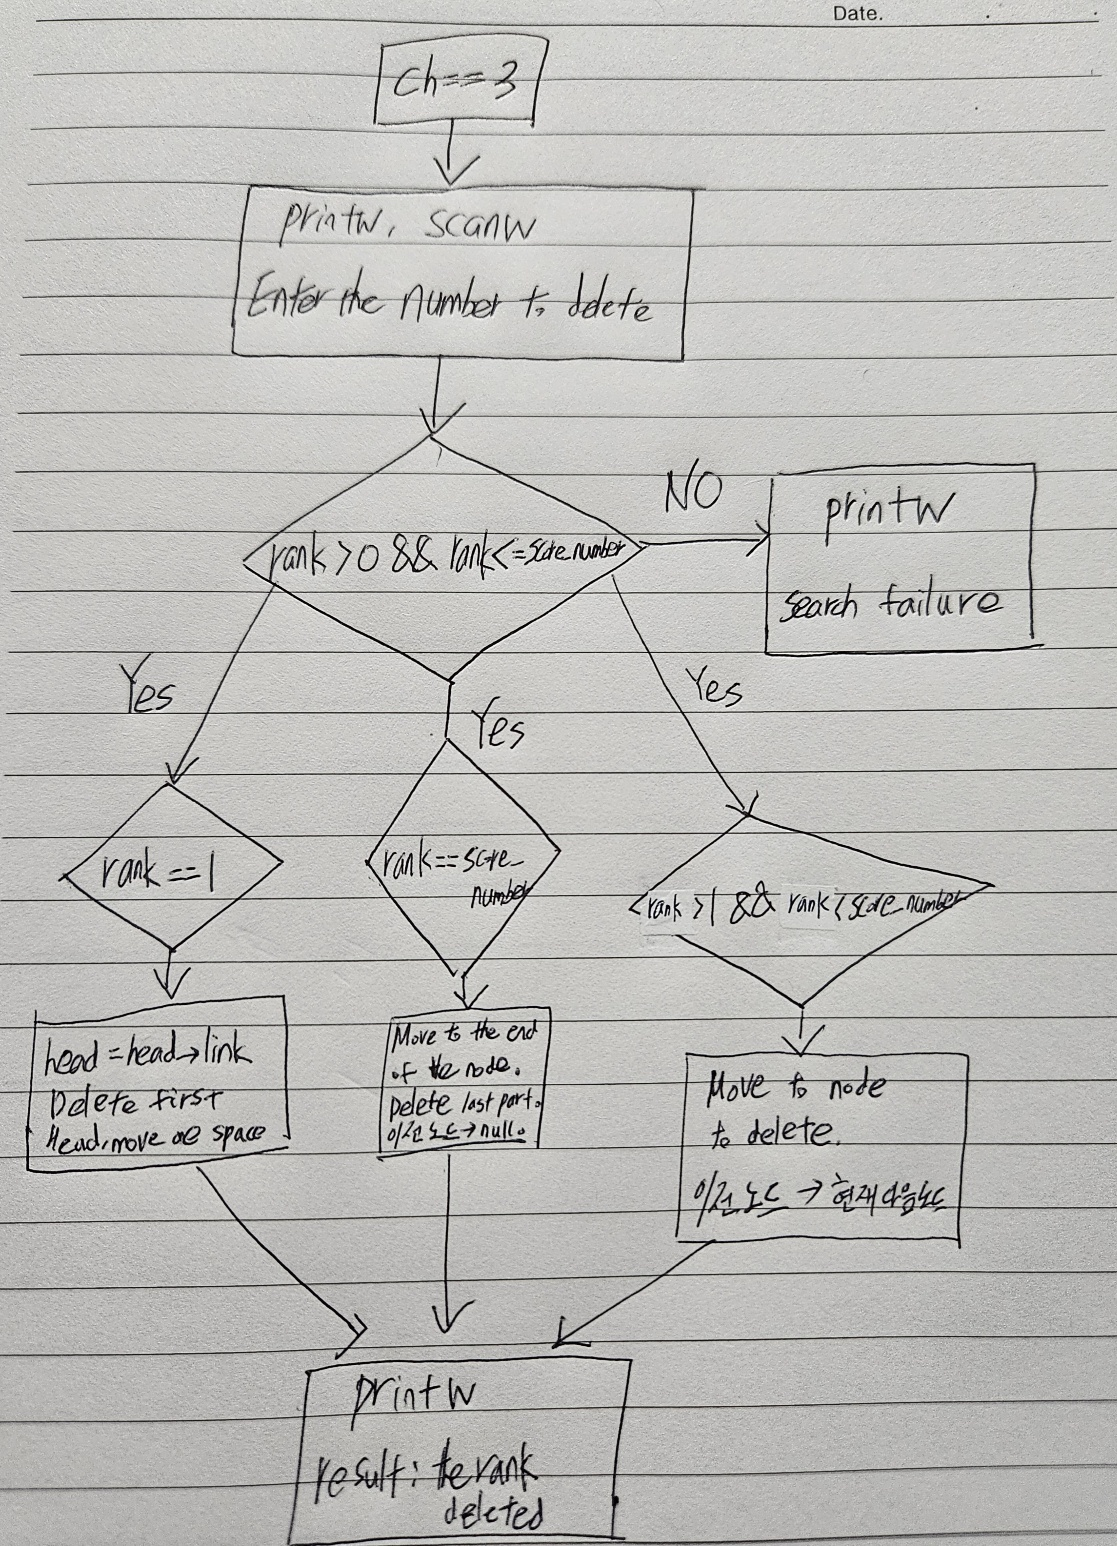 Date.
ch==3
printw, scanw
Enter the number to delete
rank>0 && rank<=score_number
NO
printw
search failure
Yes
Yes
Yes
rank==1
rank==score_
number
rank>1 && rank<score_number
head=head→link
Delete first
Head, move one space
Move to the end
of the node.
Delete last part.
이전 노드→null.
Move to node
to delete.
이전 노드 → 현재 다음 노드
printw
result: the rank
deleted